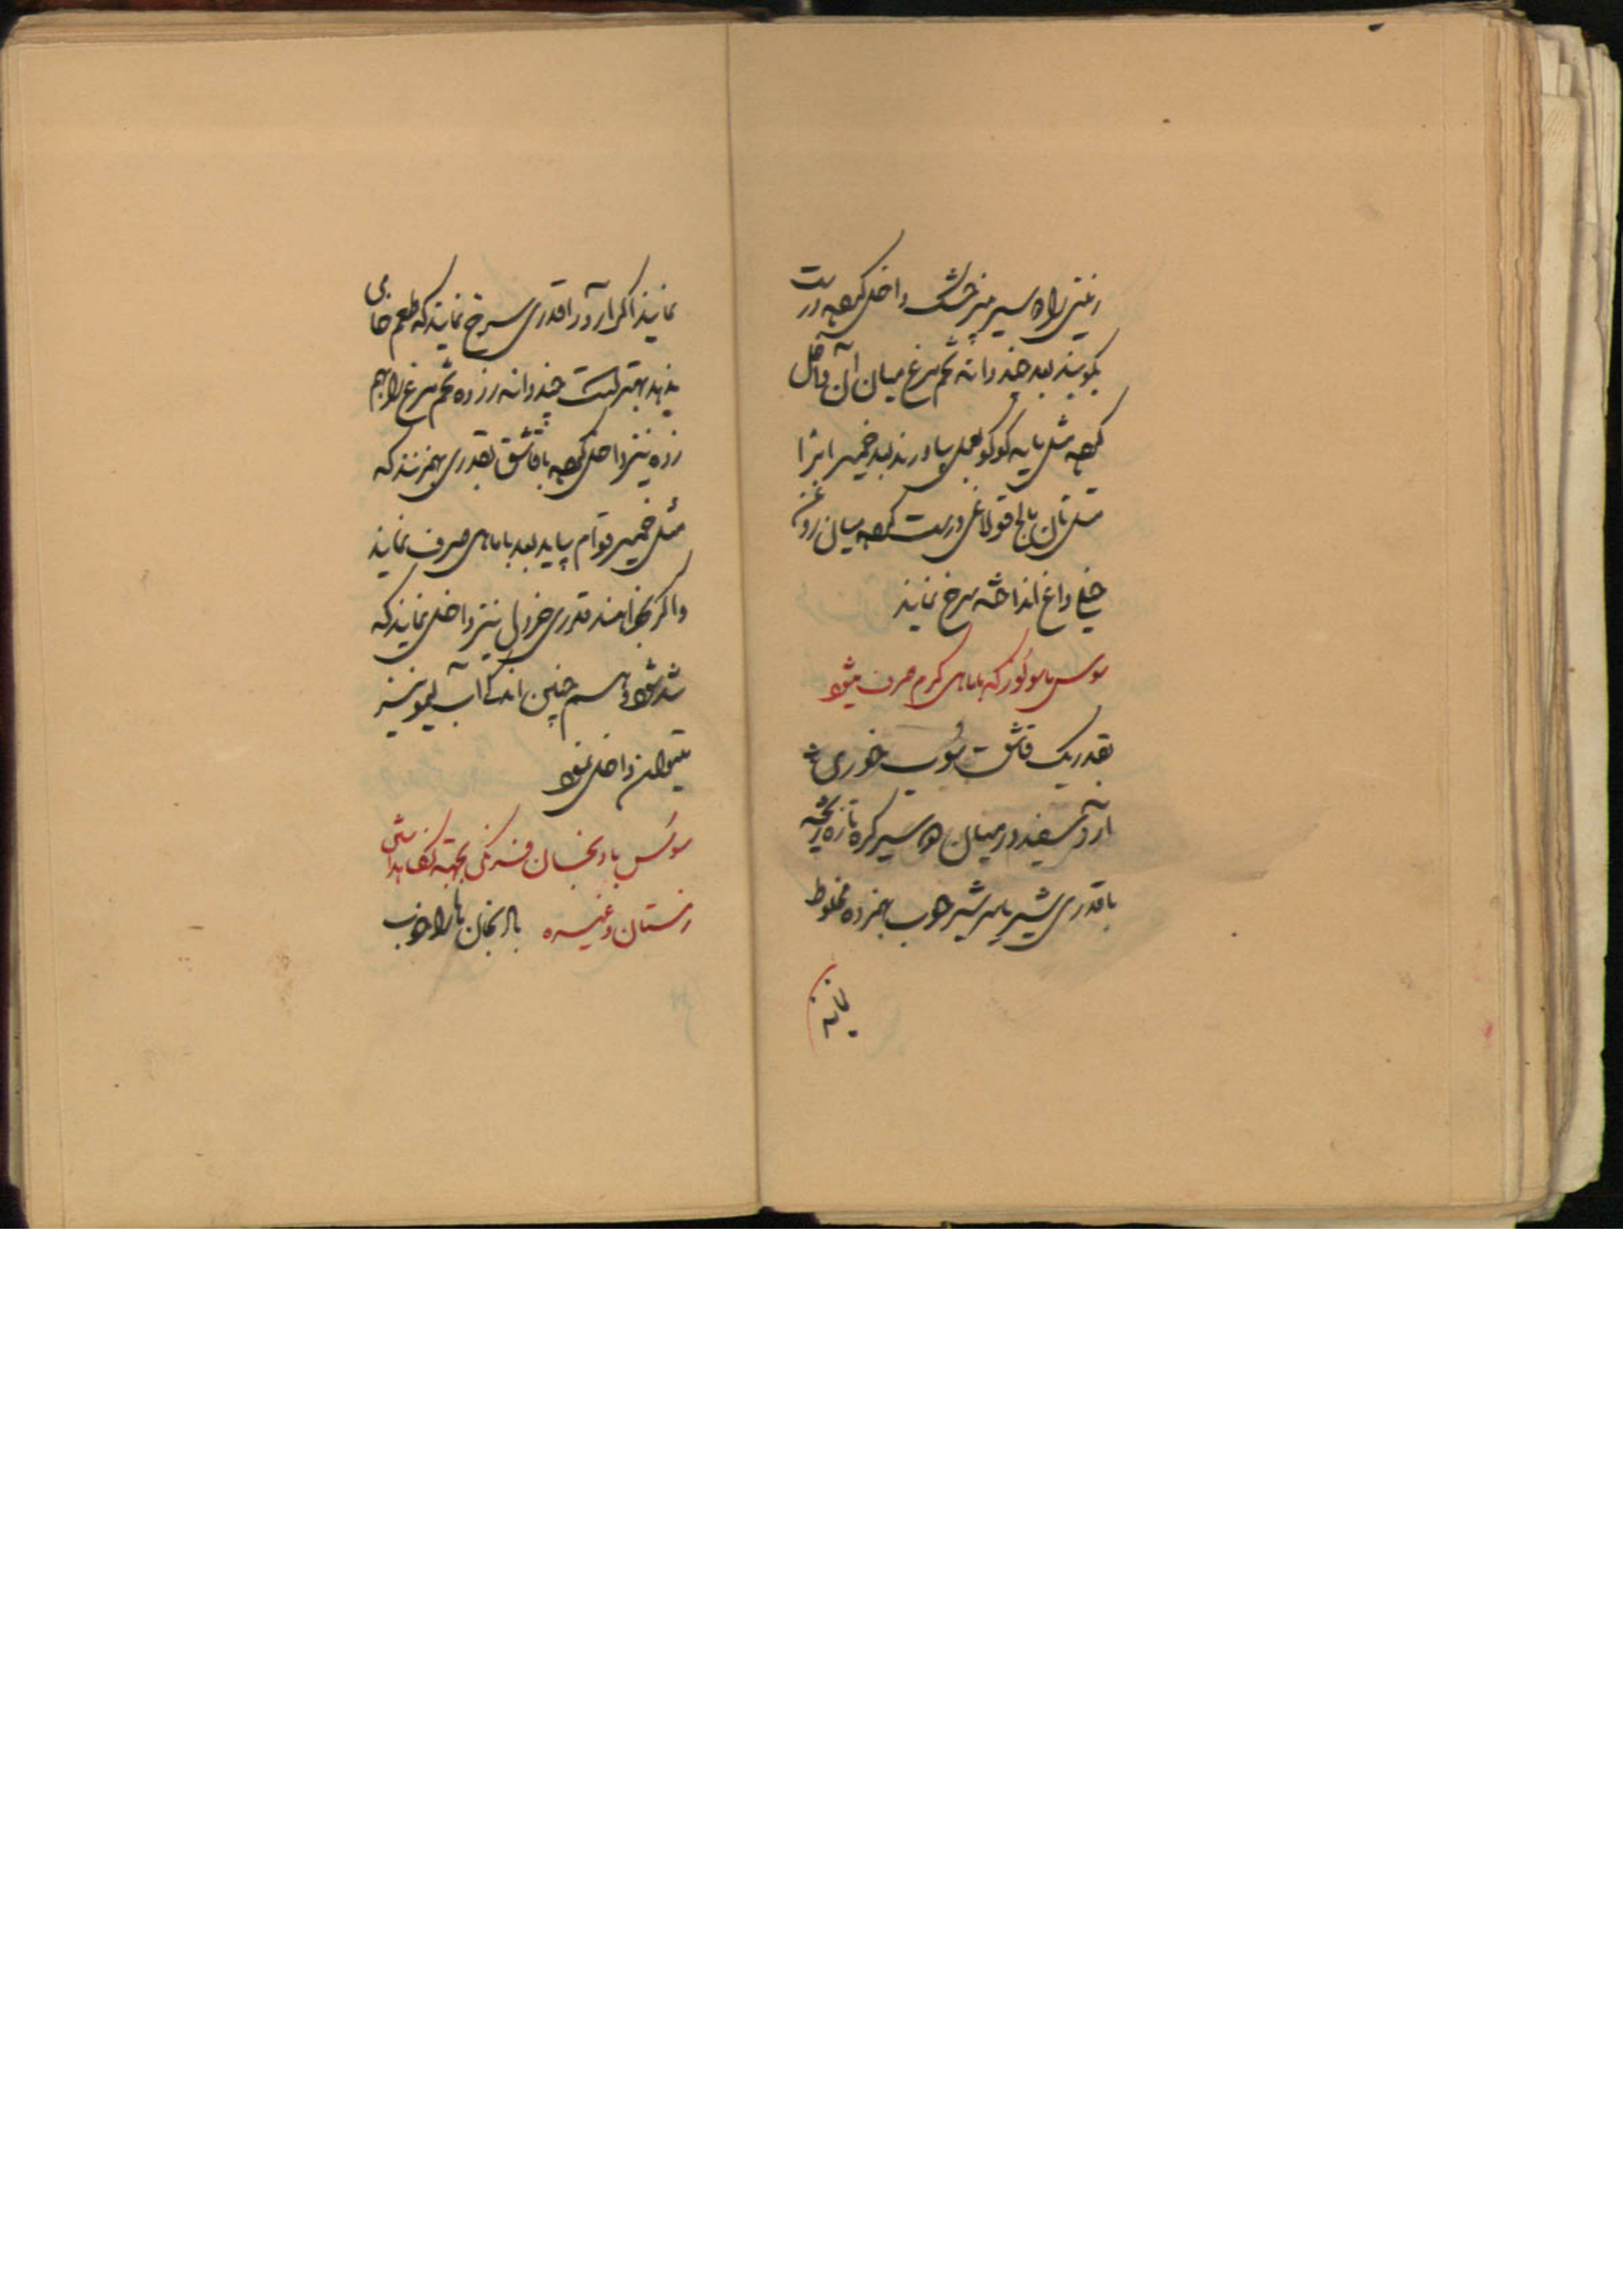 زمینی را ده سیر پنیر خشک داخل کرده درست
بکوبند بعد چند دانه تخم مرغ میان آن داخل
کرده مثل مایه کوکو بعمل بیاورند بعد خمیر انرا
مثل نان قولاغی درست کرده میان روغن
خیلی داغ انداخته سرخ نمایند
سوس که با ماهی کرم صرف میشود
بقدر یک قاشق سوپ خوری
ارد سفید در میان ده سیر کره تازه ریخته
با قدری شیر یا سرشیر خوب بهم زده مخلوط
نمایند اکر آرد را قدری سرخ نمایند که طعم خامی
ندهد بهتر است چند دانه زرده تخم مرغ را بهم
زده نیز داخل کرده با قاشق بقدری بهم زنند که
مثل خمیر قوام بیاید بعد با ماهی صرف نمایند
و اکر بخواهند قدری خردل نیز داخل نمایند که
تند شود و همچنین اندک آب لیمو نیز
میتوان داخل نمود
سوس بادنجان فرنکی بجهته نکاهداشتن
زمستان و غیره بادنجان ها را خوب